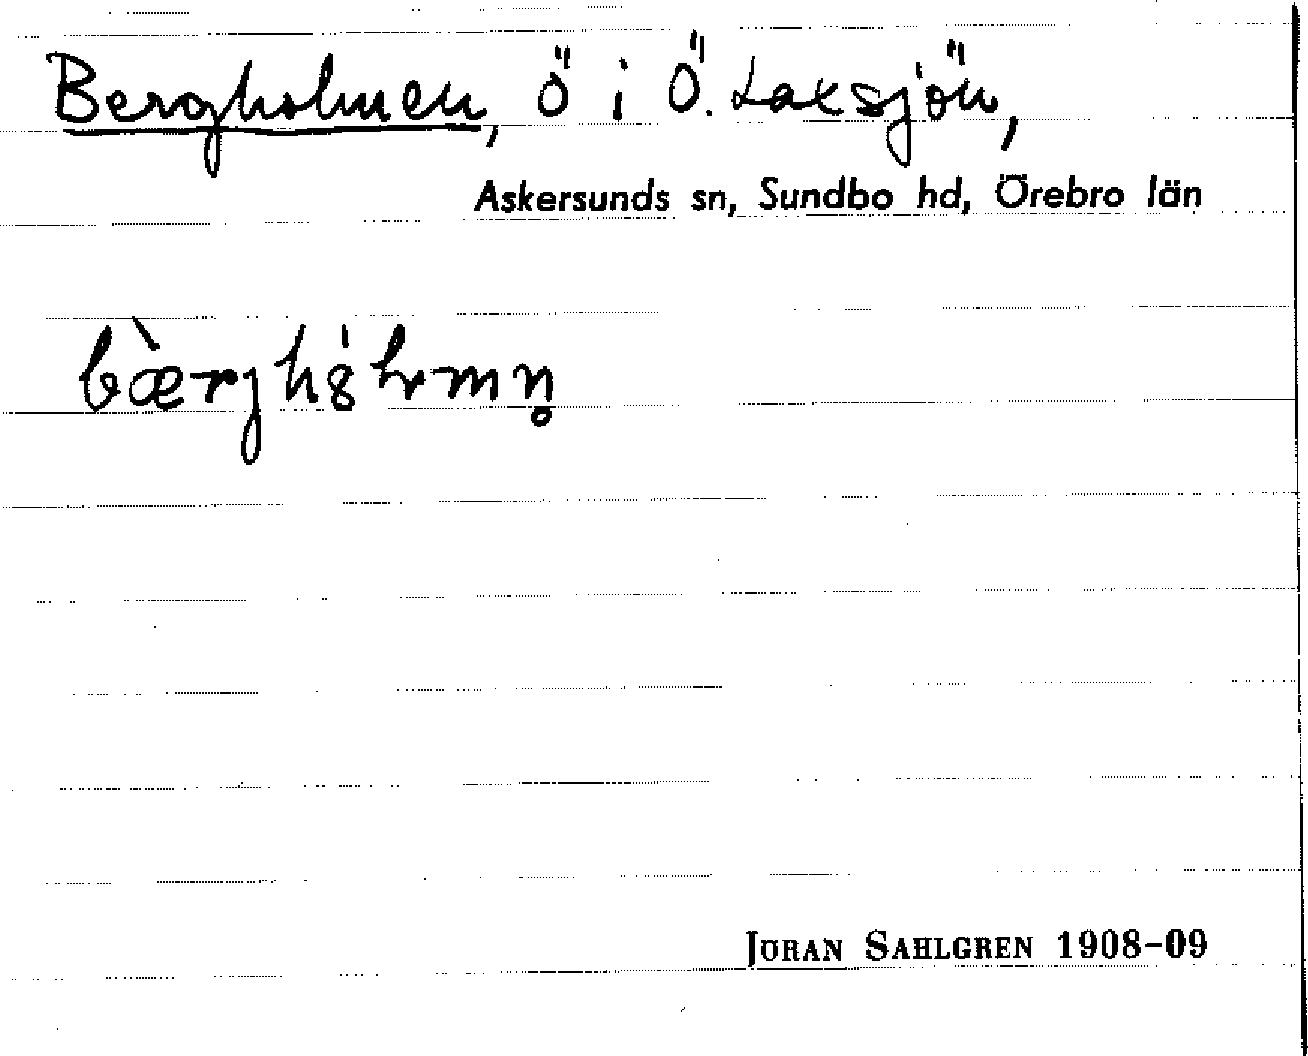 Bergholmen, ö i Ö. Laxsjön,
Askersunds sn, Sundbo hd, Örebro län
bæ̀rjhȯ́lmn̥
JÖRAN SAHLGREN 1908–09